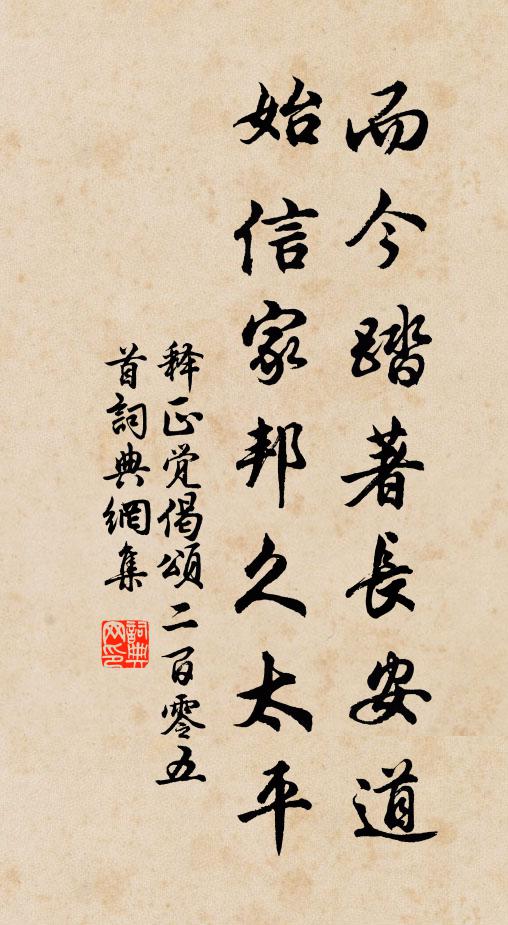 而今踏著長安道
始信家邦久太平
释正觉偈頌二百零五
首詞典網集
詞典
网印